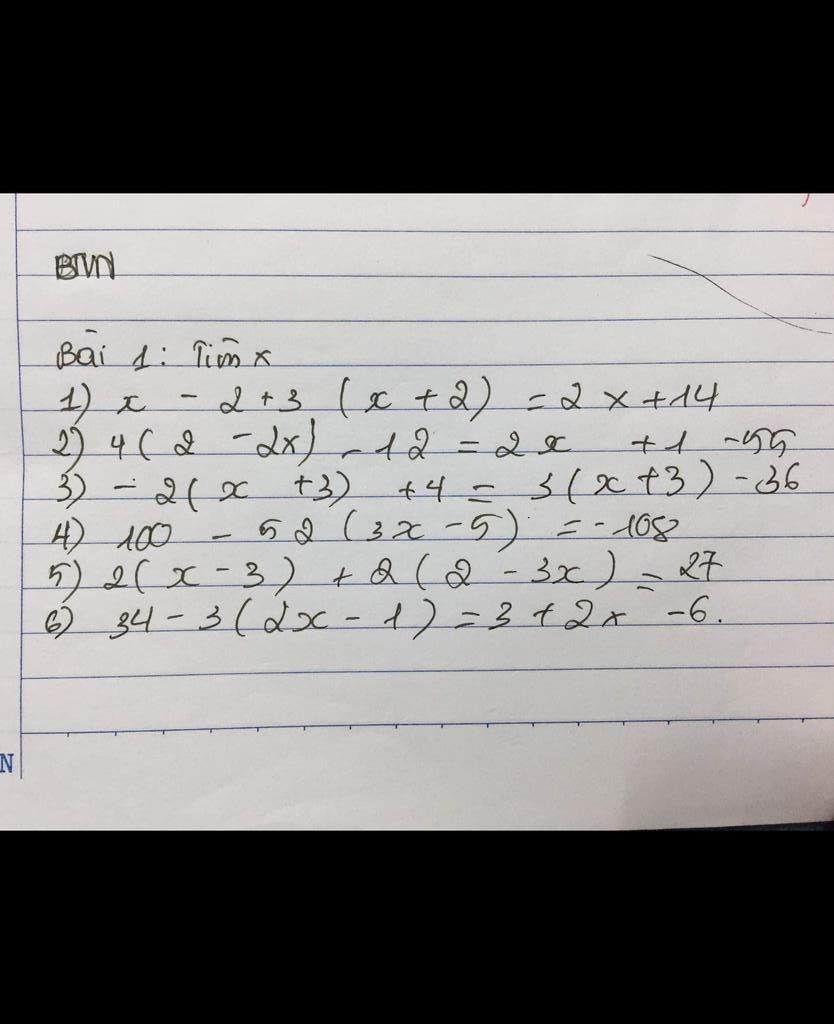 BTVN
Bài 1: Tìm x
1) x - 2 + 3 (x + 2) = 2x + 14
2) 4(2 - 2x) - 12 = 2x + 1 - 55
3) - 2(x + 3) + 4 = 3(x + 3) - 36
4) 100 - 52(3x - 5) = - 108
5) 2(x - 3) + 2(2 - 3x) = 27
6) 34 - 3(2x - 1) = 3 + 2x - 6.
N